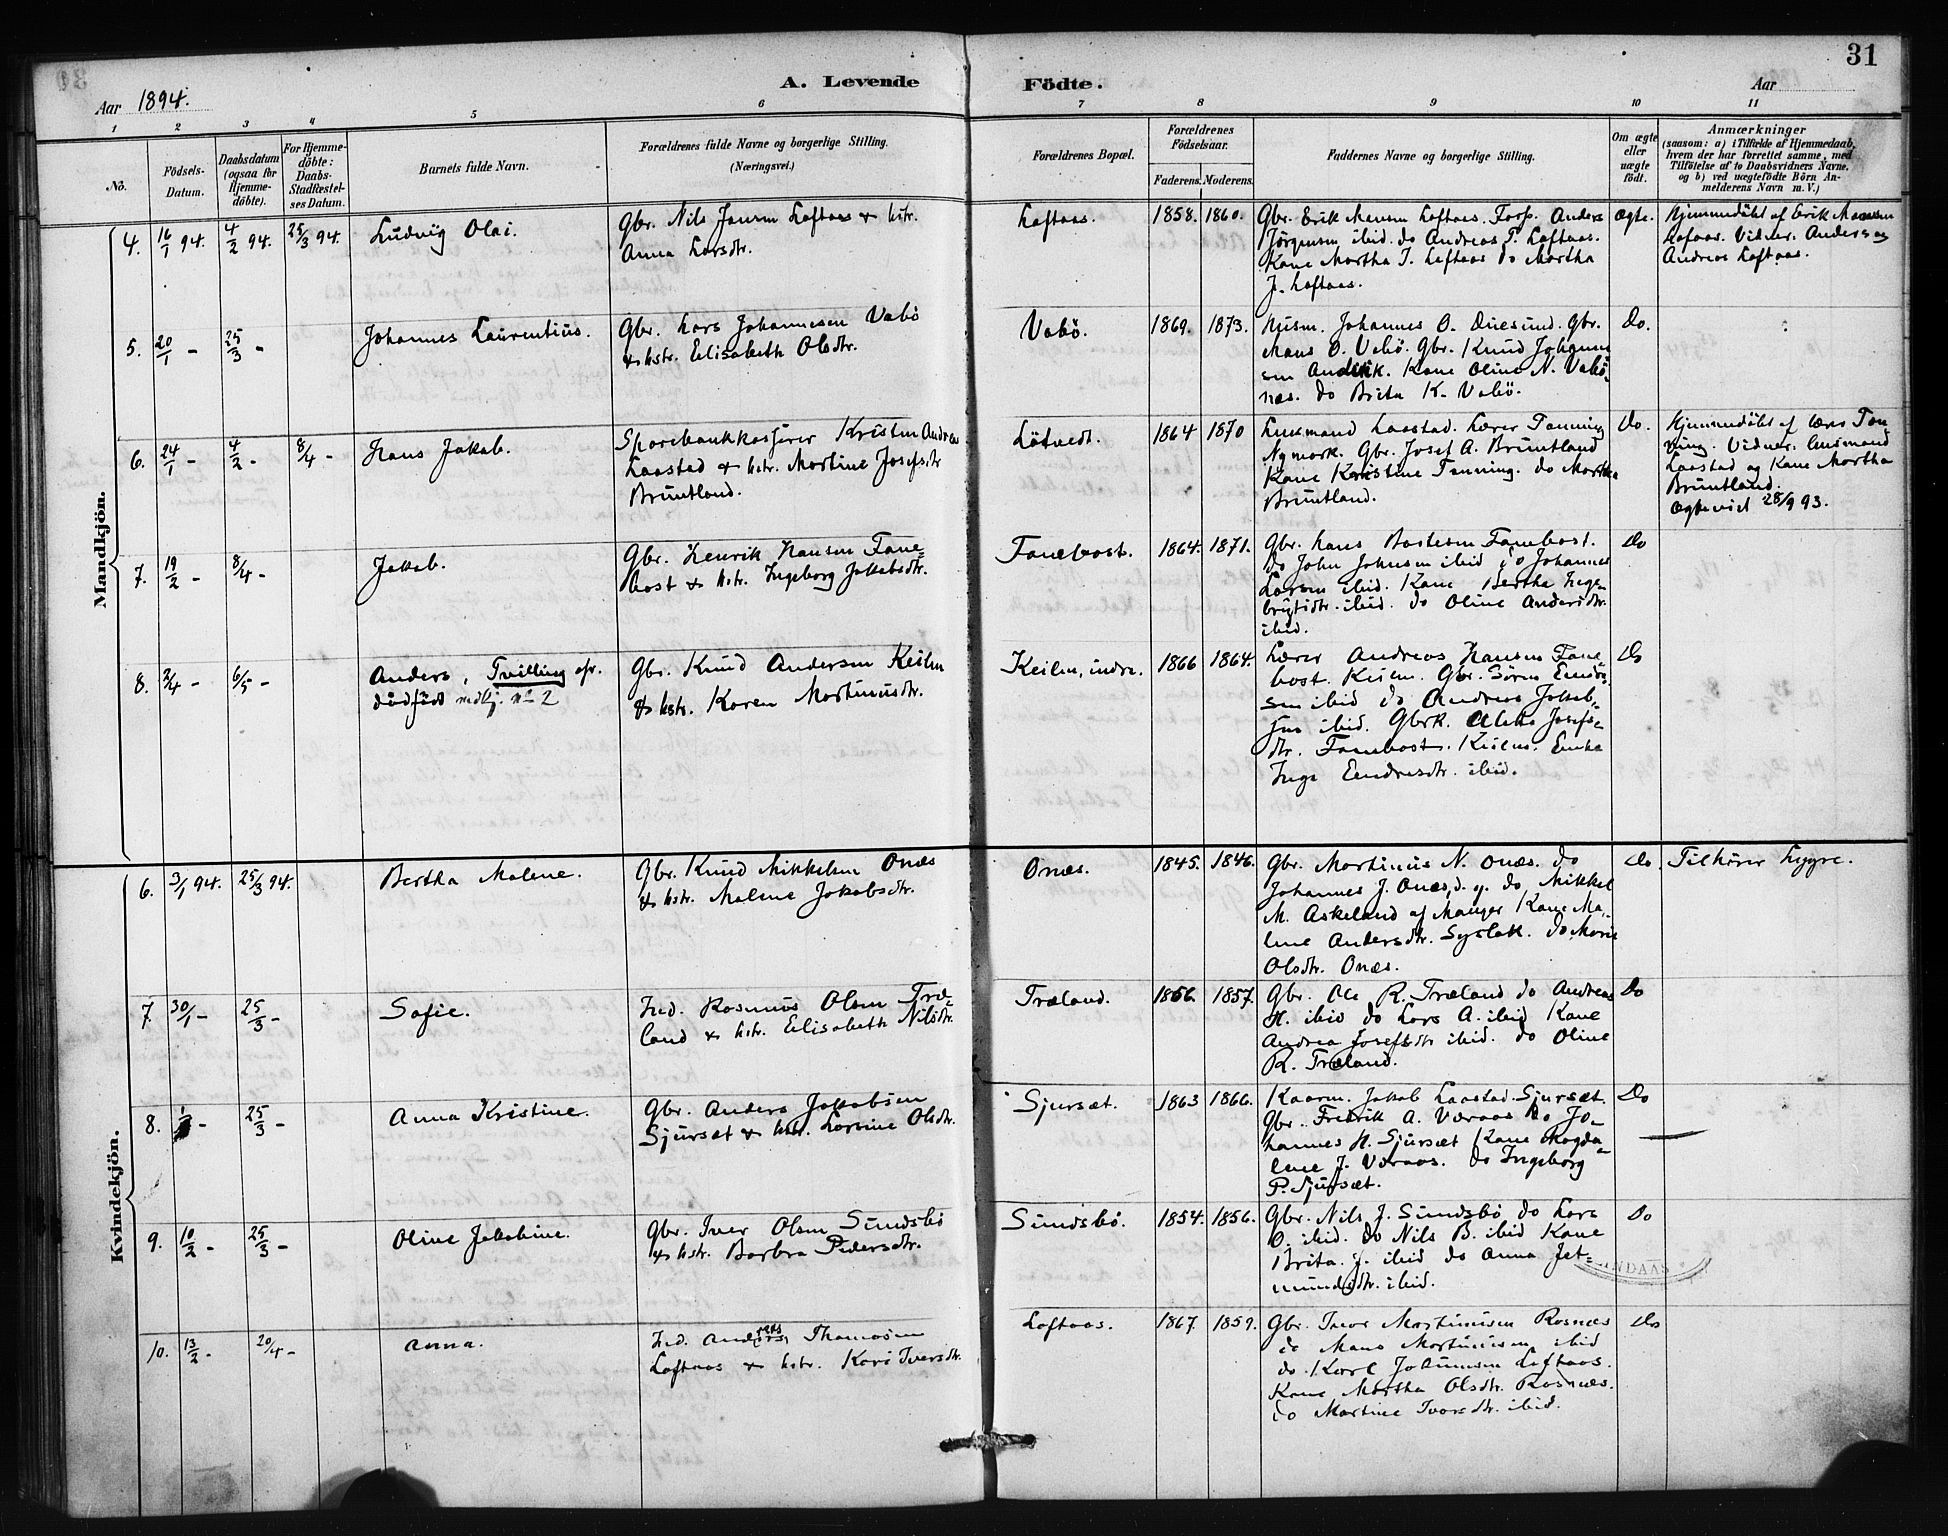 31
Aar 1894.
A. Levende Fødte.
Aar
1 2 3 4 5 6 7 8 9 10 11
No.
Födsels-Datum.
Daabsdatum (ogsaa for Hjemmedöbte).
For Hjemmedöbte: Daabs-Stadfæstelses Datum.
Barnets fulde Navn.
Forældrenes fulde Navne og borgerlige Stilling. (Næringsvei.)
Forældrenes Bopæl.
Forældrenes Födselsaar.
Faderens. Moderens.
Faddernes Navne og borgerlige Stilling.
Om ægte eller uægte födt.
Anmærkninger
(saasom: a) i Tilfælde af Hjemmedaab, hvem der har forrettet samme, med Tilföielse af to Daabsvidners Navne, og b) ved uægtefödte Börn Anmelderens Navn m. V.)
Mandkjön.
4. 16/1 94. 4/2 94. 25/3 94. Ludvig Olai.
Gbr. Nils Jansen Loftaas & hstr.
Anna Larsdtr.
Loftaas. 1858. 1860.
Gbr. Erik Monsen Loftaas. Forp. Anders
Jörgensen ibid. do Andreas T. Loftaas.
Kone Martha I. Loftaas do Martha
J. Loftaas.
Ægte.
Hjemmedöbt af Erik Monsen
Lofaas. Vidner. Anders og
Andreas Loftaas.
5. 20/1 - 25/3 - Johannes Laurentius.
Gbr. Lars Johannesen Vabö
& hstr. Elisabeth Olsdtr.
Vabö. 1869. 1873.
Husm. Johannes O. Duesund. Gbr.
Mons O. Vabö. Gbr. Knud Johannes
sen Andvik. Kone Oline N. Vabö-
næs. do Brita K. Vabö.
Do.
6. 24/1 - 4/2 - 8/4 - Hans Jakob.
Sparebankkasserer Kristen Andreas
Laastad & hstr. Martine Josefsdtr
Bruntland.
Lötvedt. 1864 1870
Lensmand Laastad. Lærer Tonning
Nymark. Gbr. Josef A. Bruntland
Kone Kristine Tonning. do Martha
Bruntland.
Do.
Hjemmedöbt af lærer Ton-
ning. Vidner. Lensmand
Laastad og Kone Martha
Bruntland.
Ægteviet 28/9 93.
7. 19/2 - 8/4 - Jakob.
Gbr. Henrik Hansen Fane-
bost & hstr. Ingeborg Jakobsdtr.
Fanebost. 1864. 1871.
Gbr. Hans Bastesen Fanebost.
do John Johnsen ibid do Johannes
Larsen ibid. Kone Bertha Inge-
brigtsdtr. ibid. do Oline Andersdtr.
ibid.
Do
8. 3/4 - 6/5 - Anders, Tvilling
dödfödt nedbj. No 2
Gbr. Knud Andersen Keilen
& hstr. Karen Martinusdtr.
Keilen, indre. 1866 1864.
Lærer Andreas Hansen Fane-
bost. Gbr. Sören
sen ibid do Andreas Jakob-
sen ibid. Josefs-
dtr. Fanebost.
Inga Endresdtr. ibid.
Do
Kvindekjön.
6. 3/1 94. 25/3 94. Bertha Malene.
Gbr. Knud Mikkelsen Onæs
& hstr. Malene Jakobsdtr.
Onæs. 1845. 1846.
Gbr. Martinus N. Onæs. do
Johannes J. Onæs, d. y. do Mikkel
M. Askeland af Manger Kone Ma-
lene Andersdtr. Syslak. do Marie
Olsdtr. Onæs.
Do.
Tilhörer Lygre.
7. 30/1 - 25/3 - Sofie.
Ind. Rasmus Olsen Træ-
land & hstr. Elisabeth Nilsdtr.
Træland. 1856. 1857.
Gbr. Ole R. Træland do Andreas
H. ibid do Lars A. ibid Kone
Andrea Josefsdtr ibid. do Oline
R. Træland.
Do
8. - 25/3 - Anna Kristine.
Gbr. Anders Jakobsen
Sjursæt & hstr. Lovine Olsdtr.
Sjursæt. 1863 1866.
Kaarm. Jakob Laastad Sjursæt.
Gbr. Fredrik A. Väraas do Jo-
hannes H. Sjursæt Kone Magda-
lene J. Väraas. do Ingeborg
P. Sjursæt.
Do
9. 10/2 - 25/3 - Oline Jakobine.
Gbr. Iver Olsen Sundsbö
& hstr. Barbra Pedersdtr.
Sundsbö. 1854. 1856.
Gbr. Nils J. Sundsbö do Lars
O. ibid. do Nils B. ibid Kone
Brita J. ibid do Anna Jet-
mundsdtr. ibid.
Do
LINDAAS *
10. 13/2 - 20/4 - Anna.
Ind. Anders Thomasen
Loftaas & hstr. Kari Iversdtr.
Loftaas. 1867 1859.
Gbr. Iver Martinusen Rosnæs
do Mons Martinusen ibid
do Karl Johannesen Loftaas.
Kone Martha Olsdtr. Rosnæs.
do Martine Iversdtr. ibid.
Do